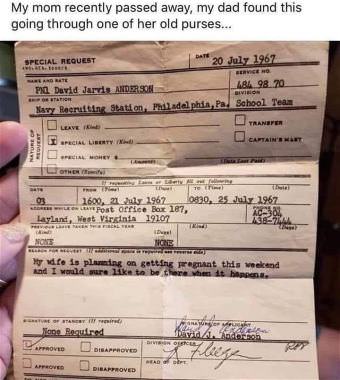 My mom recently passed away, my dad found this
going through one of her old purses...
SPECIAL REQUEST
DATE
20 July 1967
NAME AND RATE
SERVICE NO.
PN1 David Jarvis ANDERSON
484 98 70
SHIP OR STATION
DIVISION
Navy Recruiting Station, Philadelphia, Pa.
School Team
NATURE OF REQUEST
LEAVE (Kind)
TRANSFER
X SPECIAL LIBERTY (Kind)
CAPTAIN'S MAST
SPECIAL MONEY $
(Amount)
(Date Last Paid)
OTHER (Specify)
If requesting Leave or Liberty fill out following
DAYS
FROM (Time) (Date)
TO (Time) (Date)
03
1600, 21 July 1967
0830, 25 July 1967
ADDRESS WHILE ON LEAVE
Post Office Box 187,
Layland, West Virginia 19107
PHONE NO.
AC-304
PREVIOUS LEAVE TAKEN THIS FISCAL YEAR
(Kind) (Days)
(Kind) (Days)
NONE
NONE
REASON FOR REQUEST (If additional space is required use reverse side)
My wife is planning on getting pregnant this weekend
and I would sure like to be there when it happens.
SIGNATURE OF STANDBY (If required)
SIGNATURE OF APPLICANT
None Required
David J. Anderson
DIVISION OFFICER
APPROVED
DISAPPROVED
HEAD OF DEPT.
APPROVED
DISAPPROVED